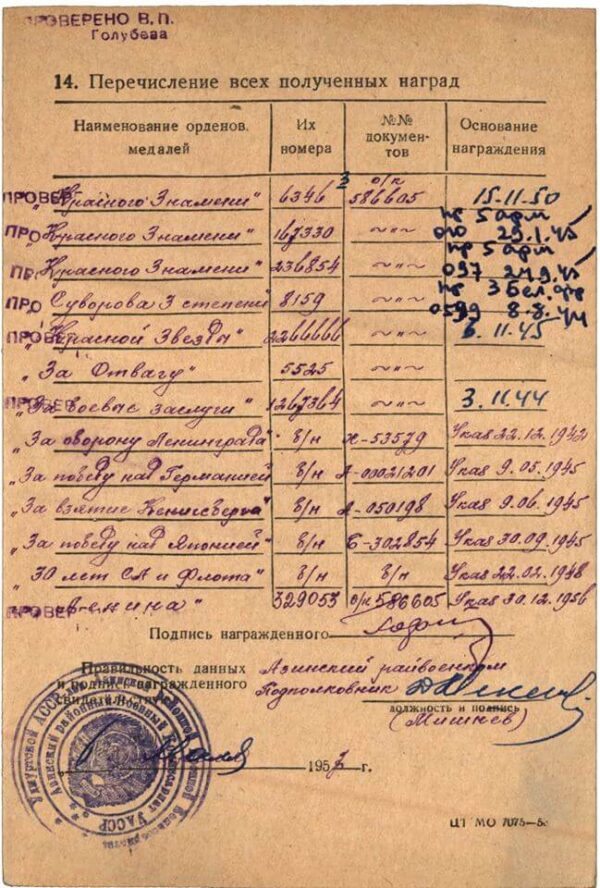 ПРОВЕРЕНО В.П.
Голубева
14. Перечисление всех полученных наград
Наименование орденов, медалей | Их номера | №№ документов | Основание награждения
"Красного Знамени" 6346 о/к 586605 15.11.50
"Красного Знамени" 167330 ~"~ пр 5 арм 010 29.1.45
"Красного Знамени" 236854 ~"~ пр 5 арм 097
Суворова 3 степени 8159 ~"~ пр 3 Бел. фр 0599 8.8.44
"Красной Звезды" 2266666 ~"~ 6.11.45
"За Отвагу" 5525 ~"~
"За боевые заслуги" 1267364 ~"~ 3.11.44
"За оборону Ленинграда" б/н Указ 22.12.1942
"За победу над Германией" б/н Указ 9.05.1945
"За взятие Кенигсберга" б/н А-050198 Указ 9.06.1945
"За победу над Японией" б/н Указ 30.09.1945
"30 лет СА и Флота" б/н б/н Указ 22.02.1948
Ленина" 329053 о/к 586605 Указ 30.12.1956
Подпись награжденного
Правильность данных Азинский райвоенком
и подпись награжденного Подполковник
свидетельствую
должность и подпись
(Мишнев)
195 г.
ЦТ МО 7075—5